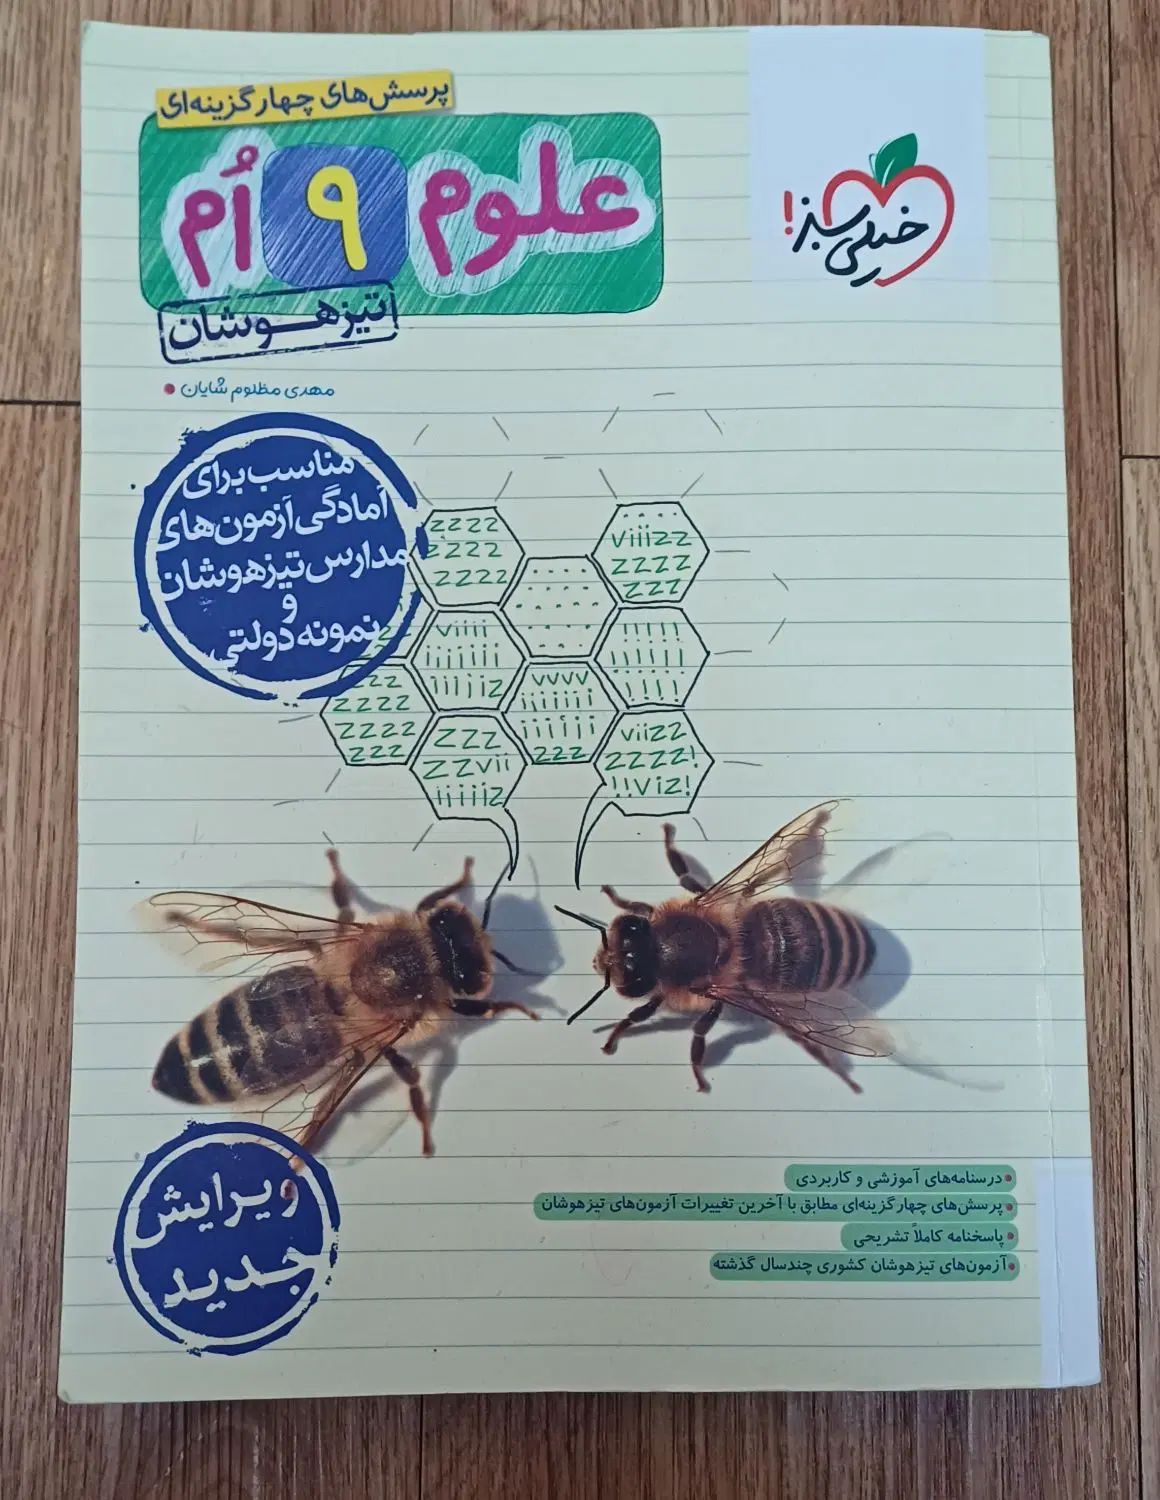 پرسش‌های چهارگزینه‌ای
علوم ۹ اُم
تیزهوشان
مهدی مظلوم شایان
خیلی سبز!
مناسب برای
آمادگی آزمون‌های
مدارس تیزهوشان
و
نمونه دولتی
zzzz
zzzz
zzzz
viiizz
zzzz
zzz
viiii
iiiiiii
iiiiiz
!!!!!
!!!!!
!!!!
zzz
zzzz
zzzz
zzz
vvvv
iiiiiii
iiiiii
zzz
zzz
zzvii
iiiiiz
viizz
zzzz!
!!viz!
ویرایش
جدید
درسنامه‌های آموزشی و کاربردی
پرسش‌های چهارگزینه‌ای مطابق با آخرین تغییرات آزمون‌های تیزهوشان
پاسخنامه کاملاً تشریحی
آزمون‌های تیزهوشان کشوری چندسال گذشته